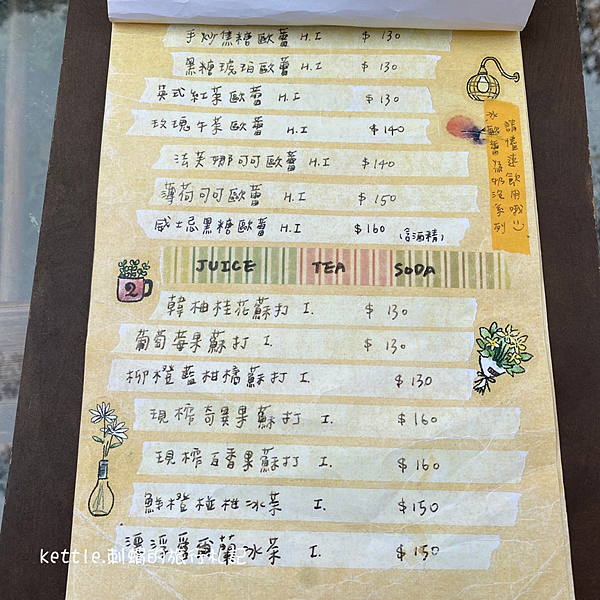 手炒焦糖歐蕾 H.I $130
黑糖琥珀歐蕾 H.I $130
英式紅茶歐蕾 H.I $130
玫瑰午茶歐蕾 H.I $140
法芙娜可可歐蕾 H.I $140
薄荷可可歐蕾 H.I $150
威士忌黑糖歐蕾 H.I $160 (含酒精)
請儘速飲用哦:)
冰歐蕾為奶泡系列
2 JUICE TEA SODA
韓柚桂花蘇打 I. $130
葡萄莓果蘇打 I. $130
柳橙藍柑橘蘇打 I. $130
現榨奇異果蘇打 I. $160
現榨百香果蘇打 I. $160
鮮橙冰茶 I. $150
漂浮爵爾蘭冰茶 I. $150
kettle.刺蝟的旅行札記